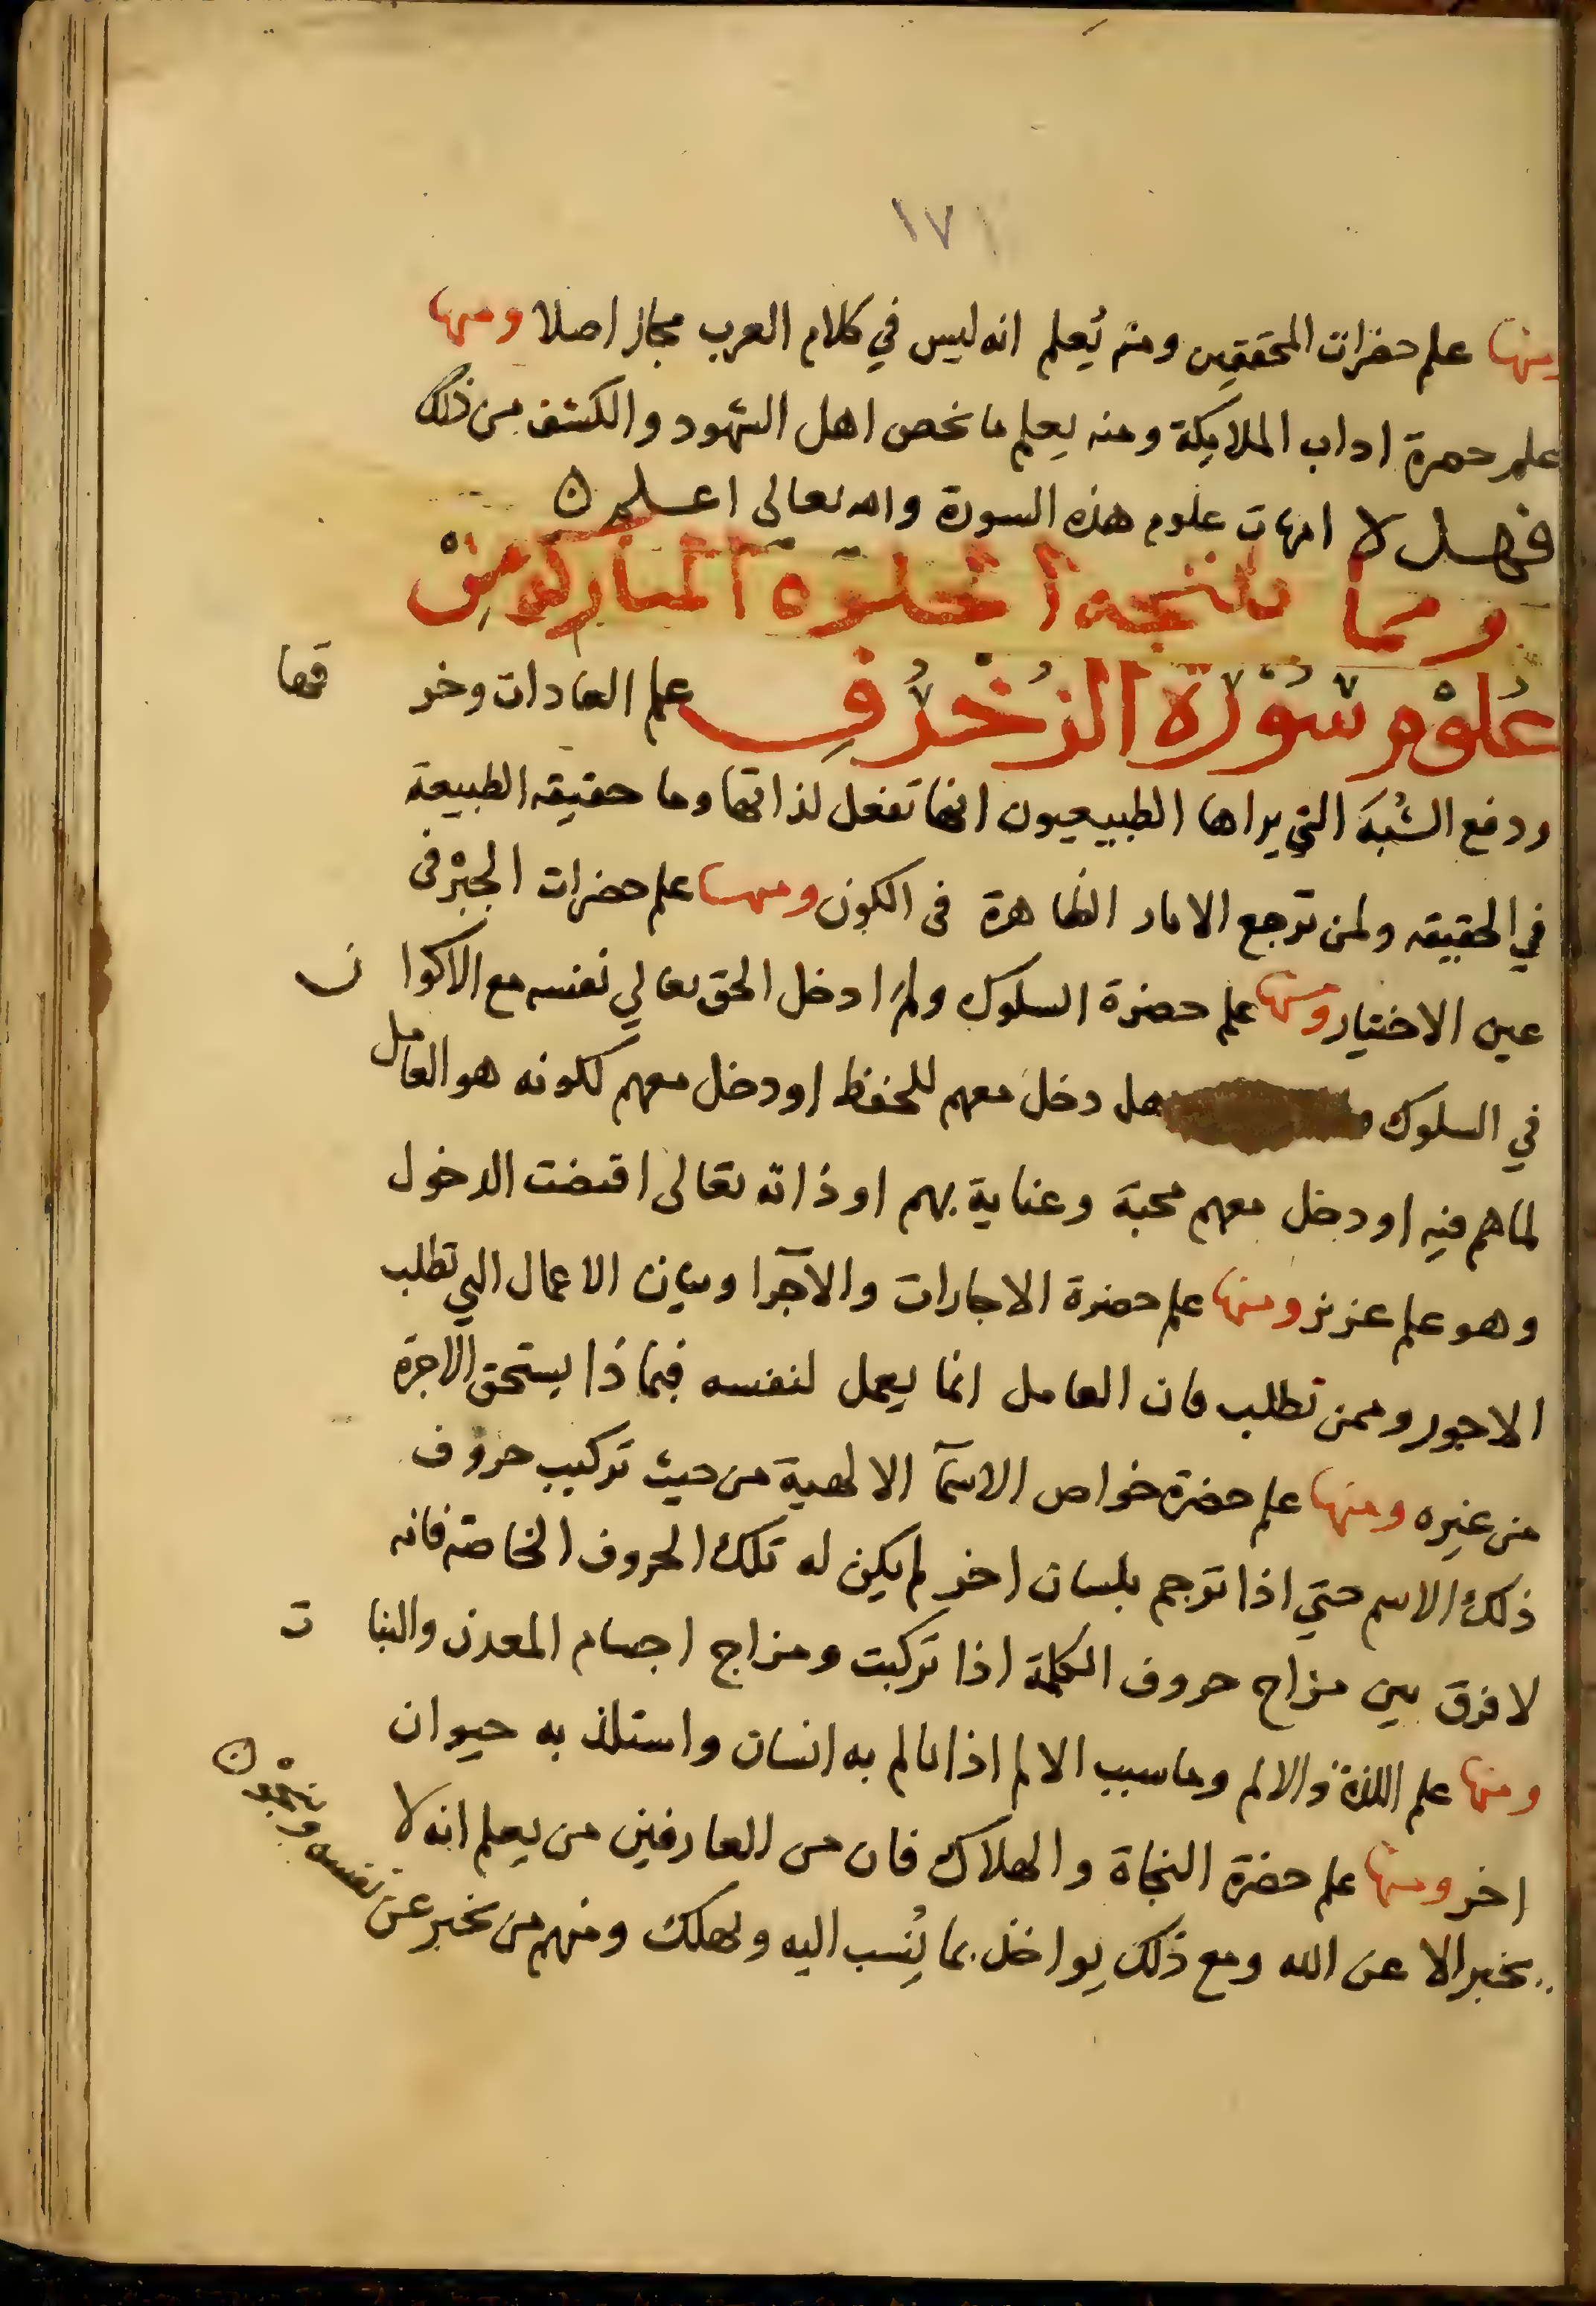 ١٧١
ومنها علم حضرات المحققين ومنه يُعلم انه ليس في كلام العرب مجاز اصلا ومنها
علم حضرة اداب الملايكة ومنه يعلم ما يخص اهل الشهود والكشف من ذلك
فهـــل لا امهات علوم هذه السورة والله تعالى اعـــلم ن
ومما تنتجه الخلوة المباركة من
علوم سُوْرَة الزُخْرُفِ علم العادات وخر قها
ودفع الشُبَه التي يراها الطبيعيون انها تفعل لذاتها وما حقيقه الطبيعة
في الحقيقه ولمن ترجع الاثار الظاهرة فى الكون ومنها علم حضرات الجبْر فى
عين الاختيار ومنها علم حضرة السلوك ولم ادخل الحق تعالي نفسه مع الاكوا ن
في السلوك هل دخل معهم للحفظ او دخل معهم لكونه هو العامل
لما هم فيه او دخل معهم محبة وعناية بهم او ذاته تعالى اقتضت الدخول
وهو علم عزيز ومنها علم حضرة الاجارات والآجرا وبيان الاعمال التي تطلب
الاجور وممن تطلب فان العامل انما يعمل لنفسه فبماذا يستحق الاجرة
من غيره ومنها علم حضرة خواص الاسمآ الالهية من حيث تركيب حروف
ذلك الاسم حتي اذا ترجم بلسان اخر لم يكن له تلك الحروف الخاصة فانه
لا فرق بين مزاج حروف الكلمة اذا تركبت ومزاج اجسام المعدن والنبا ت
ومنها علم اللذة والالم وما سبب الالم اذا تالم به انسان واستلذ به حيوان
اخر ومنها علم حضرة النجاة والهلاك فان من العارفين من يعلم انه لا
يخبر الا عن الله ومع ذلك يواخذ بما يُنسب اليه ويهلك ومنهم من يخبر عن نفسه وينجو ن